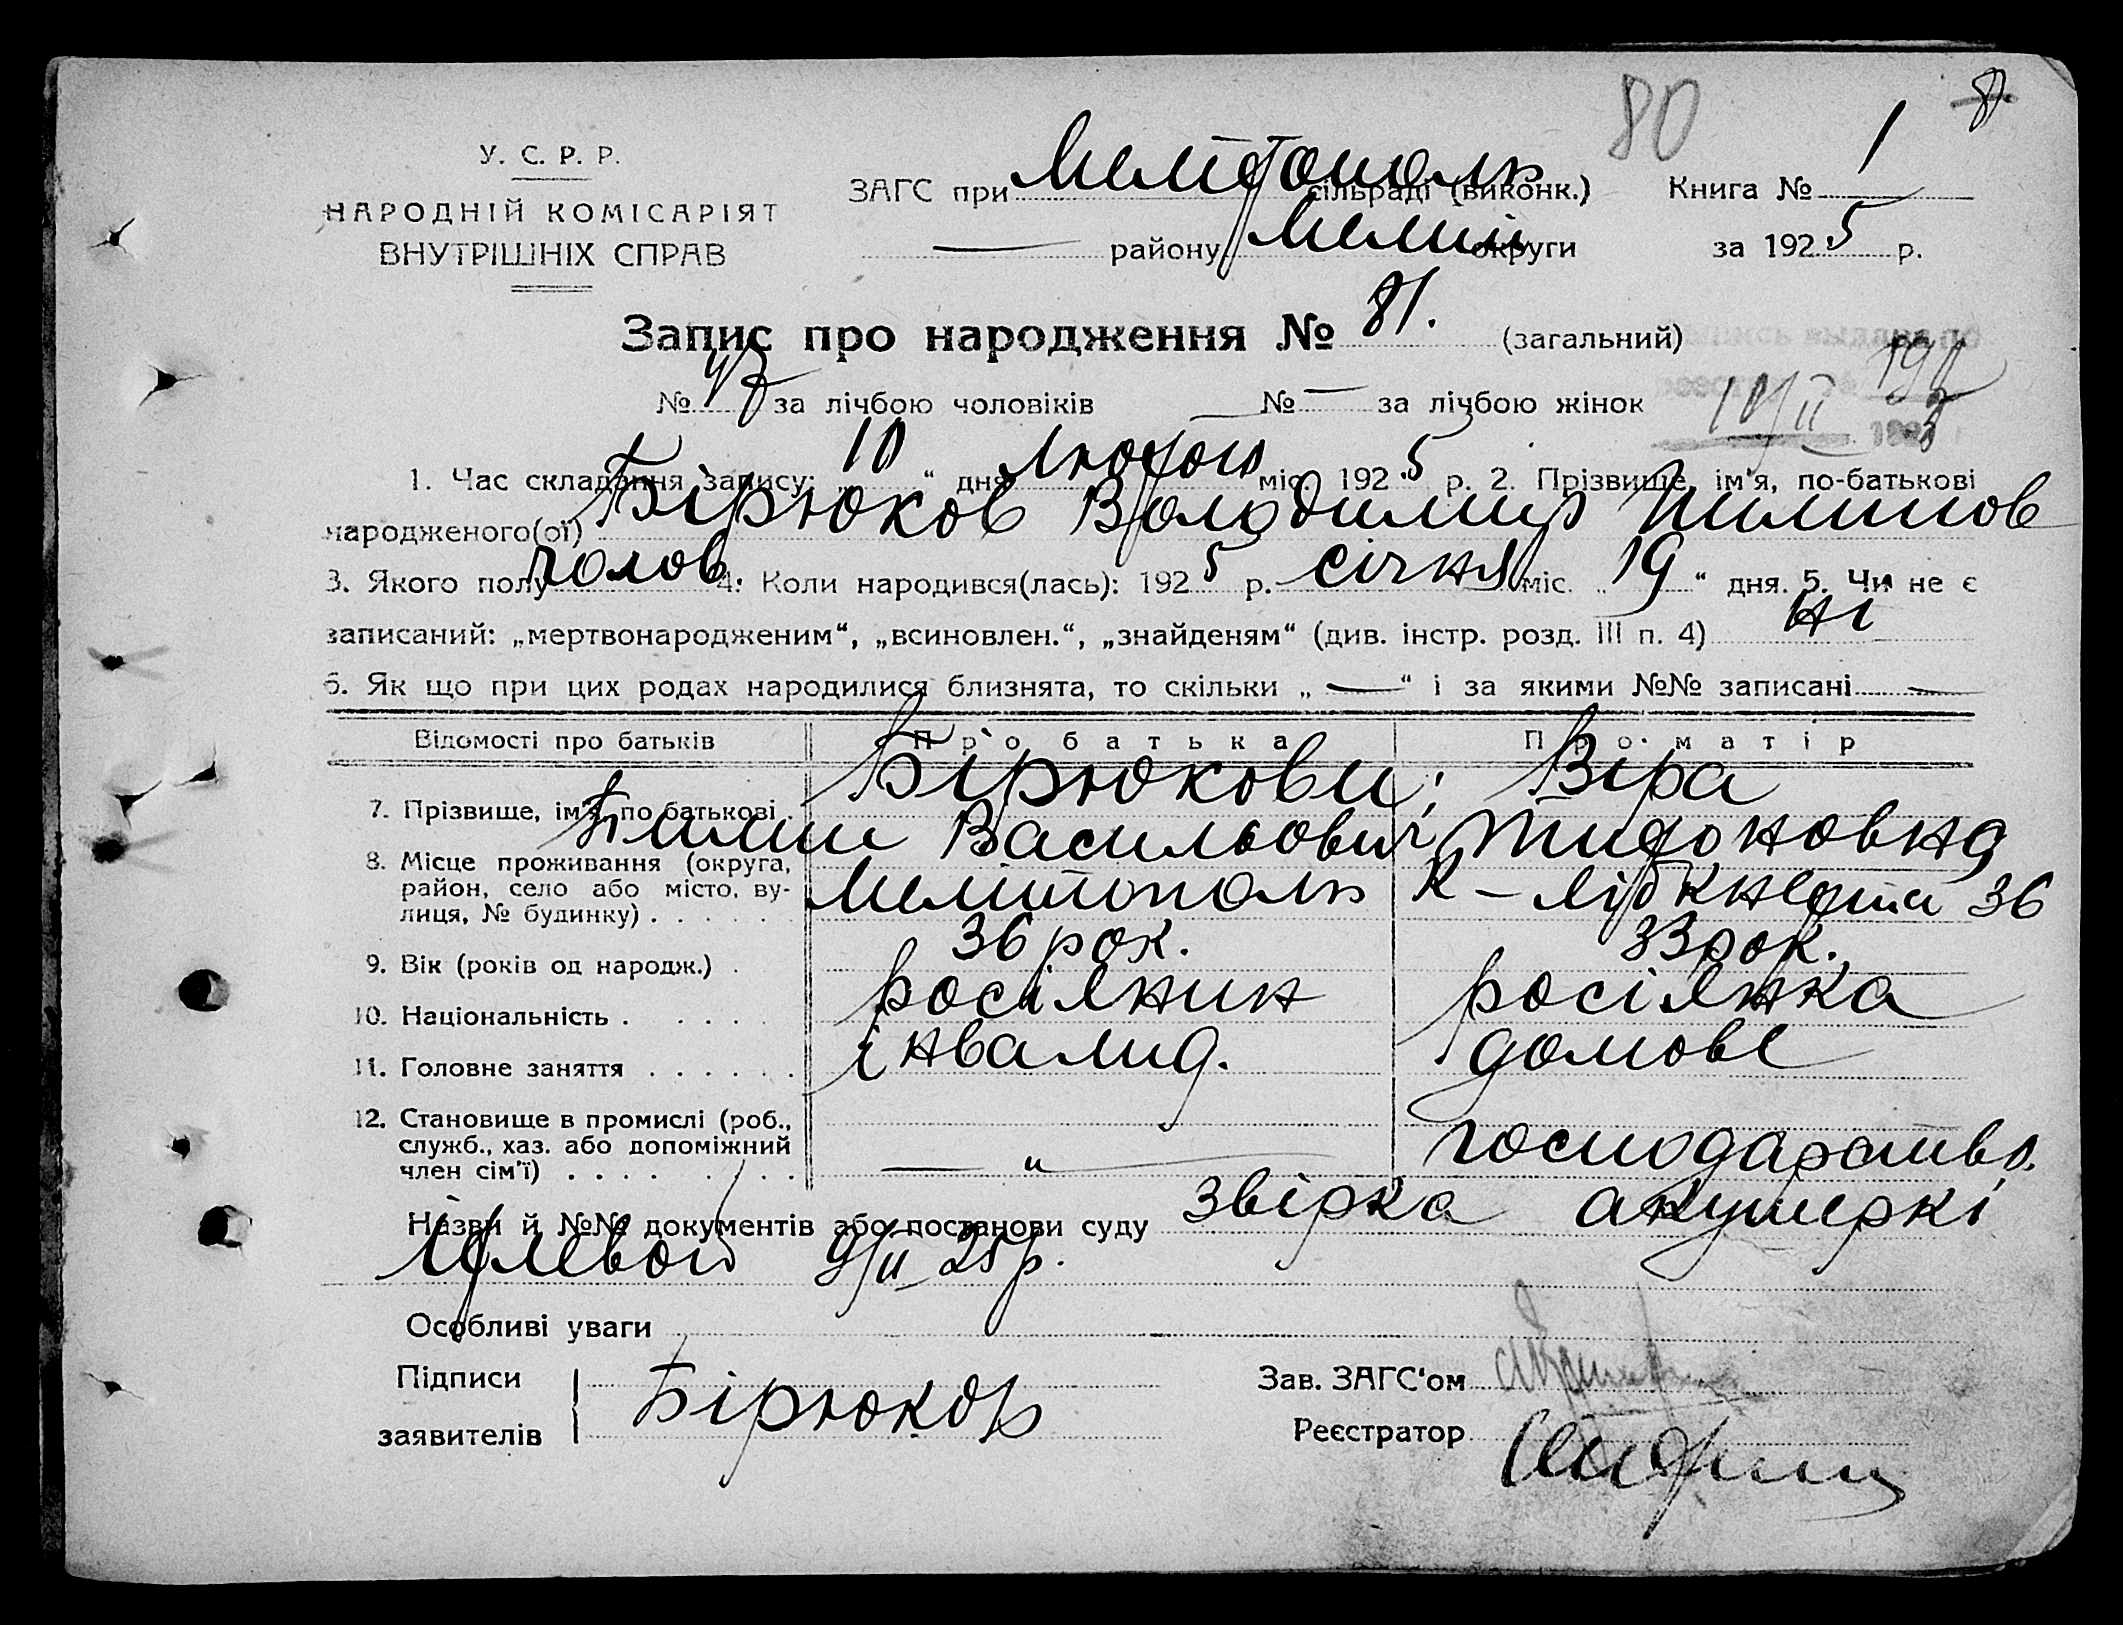 80
8
У. С. Р. Р.
НАРОДНІЙ КОМІСАРІЯТ
ВНУТРІШНІХ СПРАВ
ЗАГС при Мелітополь сільраді (виконк.) Книга № 1
— району Меліт округи за 1925 р.
Запис про народження № 81. (загальний)
№ 47 за лічбою чоловіків — № — за лічбою жінок
1. Час складання запису: „10“ дня Лютого міс. 1925 р. 2. Прізвище, ім'я, по-батькові
народженого(ої) Бірюков Володимир Пилипов
3. Якого полу чолов. 4. Коли народився(лась): 1925 р. січня міс. „19“ дня. 5. Чи не є
записаний: „мертвонародженим“, „всиновлен.“, „знайденям“ (див. інстр. розд. III п. 4) ні
6. Як що при цих родах народилися близнята, то скільки „—“ і за якими №№ записані —
Відомості про батьків Про батька Про матір
7. Прізвище, ім'я, по батькові Бірюкови: Віра
Пилип Васильович, Тихоновна
8. Місце проживання (округа,
район, село або місто, ву-
лиця, № будинку) Мелітополь К-Лібкнехта 36
9. Вік (років од народж.) 36 рок. 33 рок.
10. Національність росіянин росіянка
11. Головне заняття інвалид. домове
12. Становище в промислі (роб.,
служб., хаз. або допоміжний
член сім'ї) — " — господарство.
Назви й №№ документів або постанови суду звірка акушеркі
9/II 25 р.
Особливі уваги
Підписи
заявителів Бірюков
Зав. ЗАГС'ом
Реєстратор